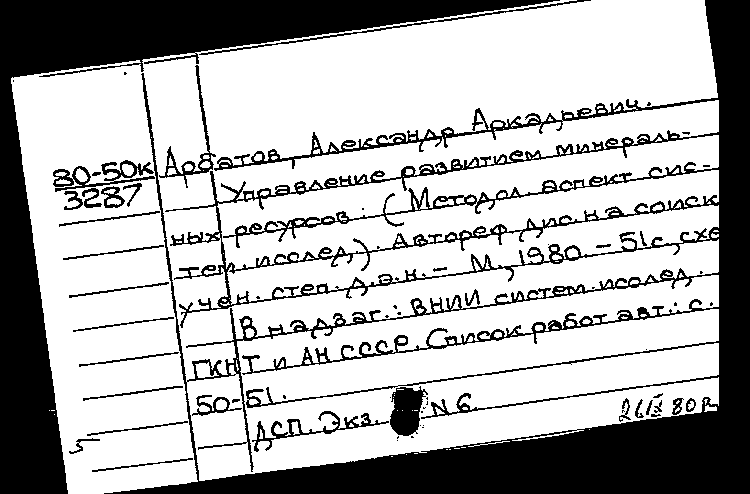 80-50к
3287
Арбатов, Александр Аркадьевич.
Управление развитием минераль-
ных ресурсов: (Методол. аспект сис-
тем. исслед.). Автореф. дис. на соиск
учен. степ. д.э.н. - М., 1980. - 51с., схе
В надзаг.: ВНИИ систем. исслед.
ГКНТ и АН СССР. Список работ авт.: с.
50-51.
ДСП. Экз. N 6.
5